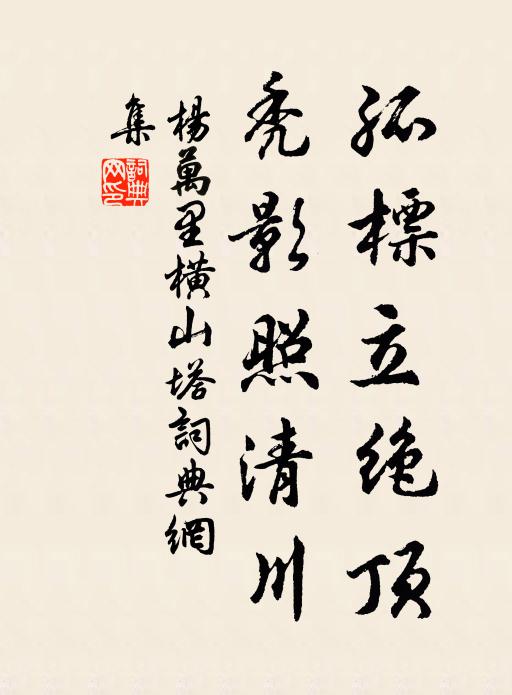 孤標立絶頂
秃影照清川
楊萬里橫山塔詞典網
集
詞典網印